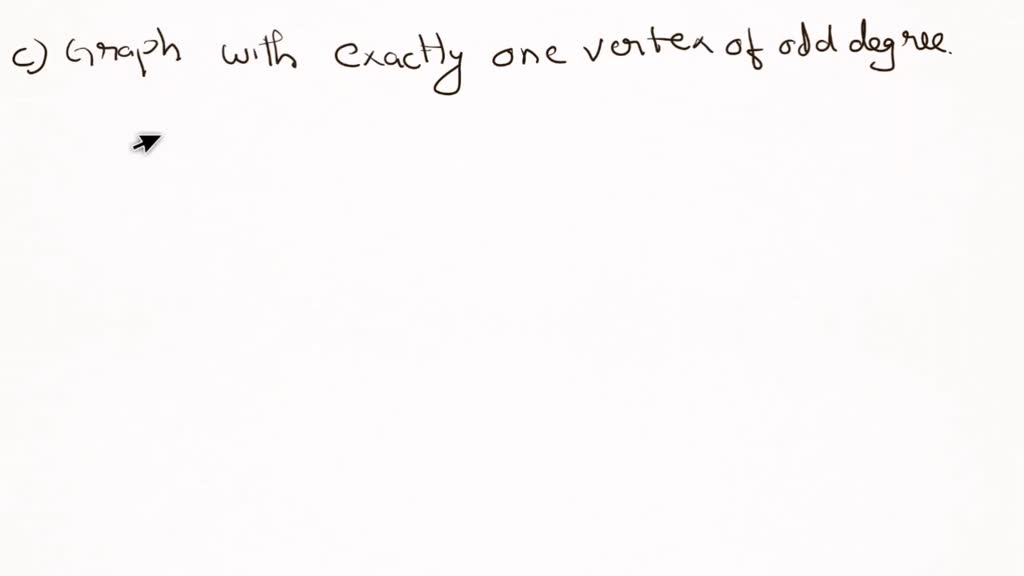 c) Graph with exactly one vertex of odd degree.